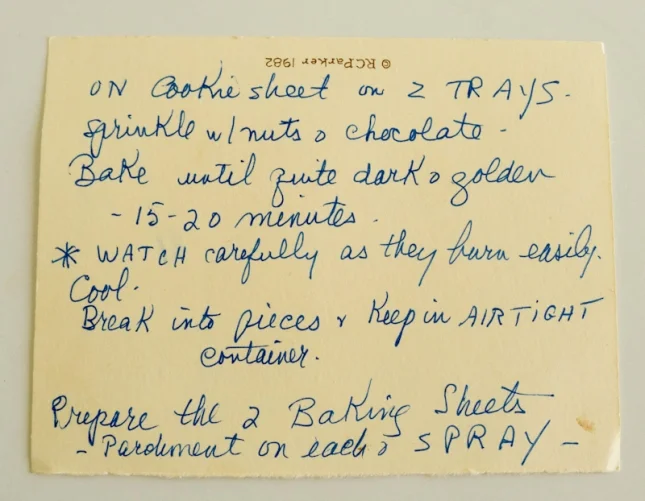 © RCParker 1982
ON Cookie sheet on 2 TRAYS.
sprinkle w/nuts & chocolate -
Bake until quite dark & golden
- 15-20 minutes.
* WATCH carefully as they burn easily.
Cool.
Break into pieces & Keep in AIRTIGHT
container.
Prepare the 2 Baking Sheets
- Parchment on each & SPRAY -